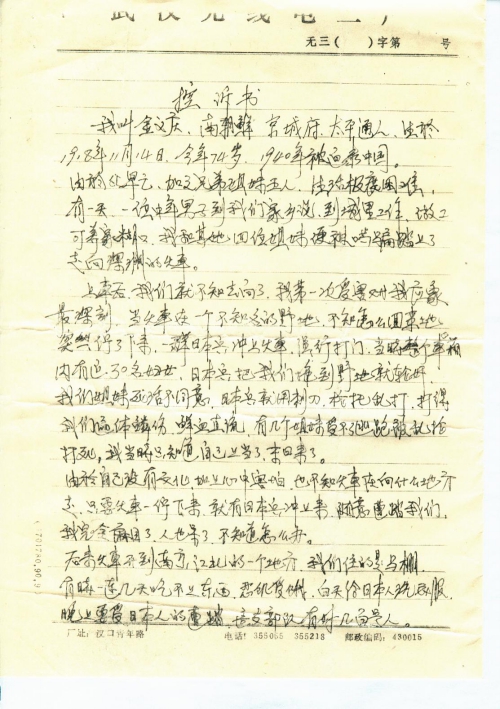 武汉无线电三厂
无三（ ）字第 号
控诉书
我叫金义庆、南朝鲜 京城府、太平通人，生於
1918年11月14日，今年74岁，1940年被逼来中国。
由於 父母 加之兄弟姐妹五人，生活极度困难，
有一天、一位中年男子到我们家乡说，到 工作，做工
可养家糊口，我和其他四位姐妹便被哄骗踏上了
走向深渊的火车。
上车后，我们就不知去向了，我第一次受害对我印象
最深刻，当火车在一个不知名的野地，不知怎么回事地
突然停了下来，一群日本兵冲上火车，强行打门，当时整个车箱
内有近30名妇女，日本兵把我们 到野地就
我们姐妹死活不同意，日本兵就用刺刀、枪托乱打，打得
我们遍体鳞伤，鲜血直流，有几个姐妹受不了 跑被乱枪
打死，我当时只知道自己上当了，来回来了。
由於自己没有文化，加上心中害怕，也不知火车在向什么地方
去，只要火车一停下来，就有日本兵冲上来，随意遭蹋我们，
我完全麻木了，人也呆了，不知道怎么办。
后来火车开到南京，江北的一个地方，我们住的是马棚，
有时一连几天吃不上东西，忍饥受饿，白天给日本人洗衣服，
晚上要受日本人的遭蹋，这支部队有好几百号人。
厂址：汉口青年路 电话：355065 355218 邮政编码：430015